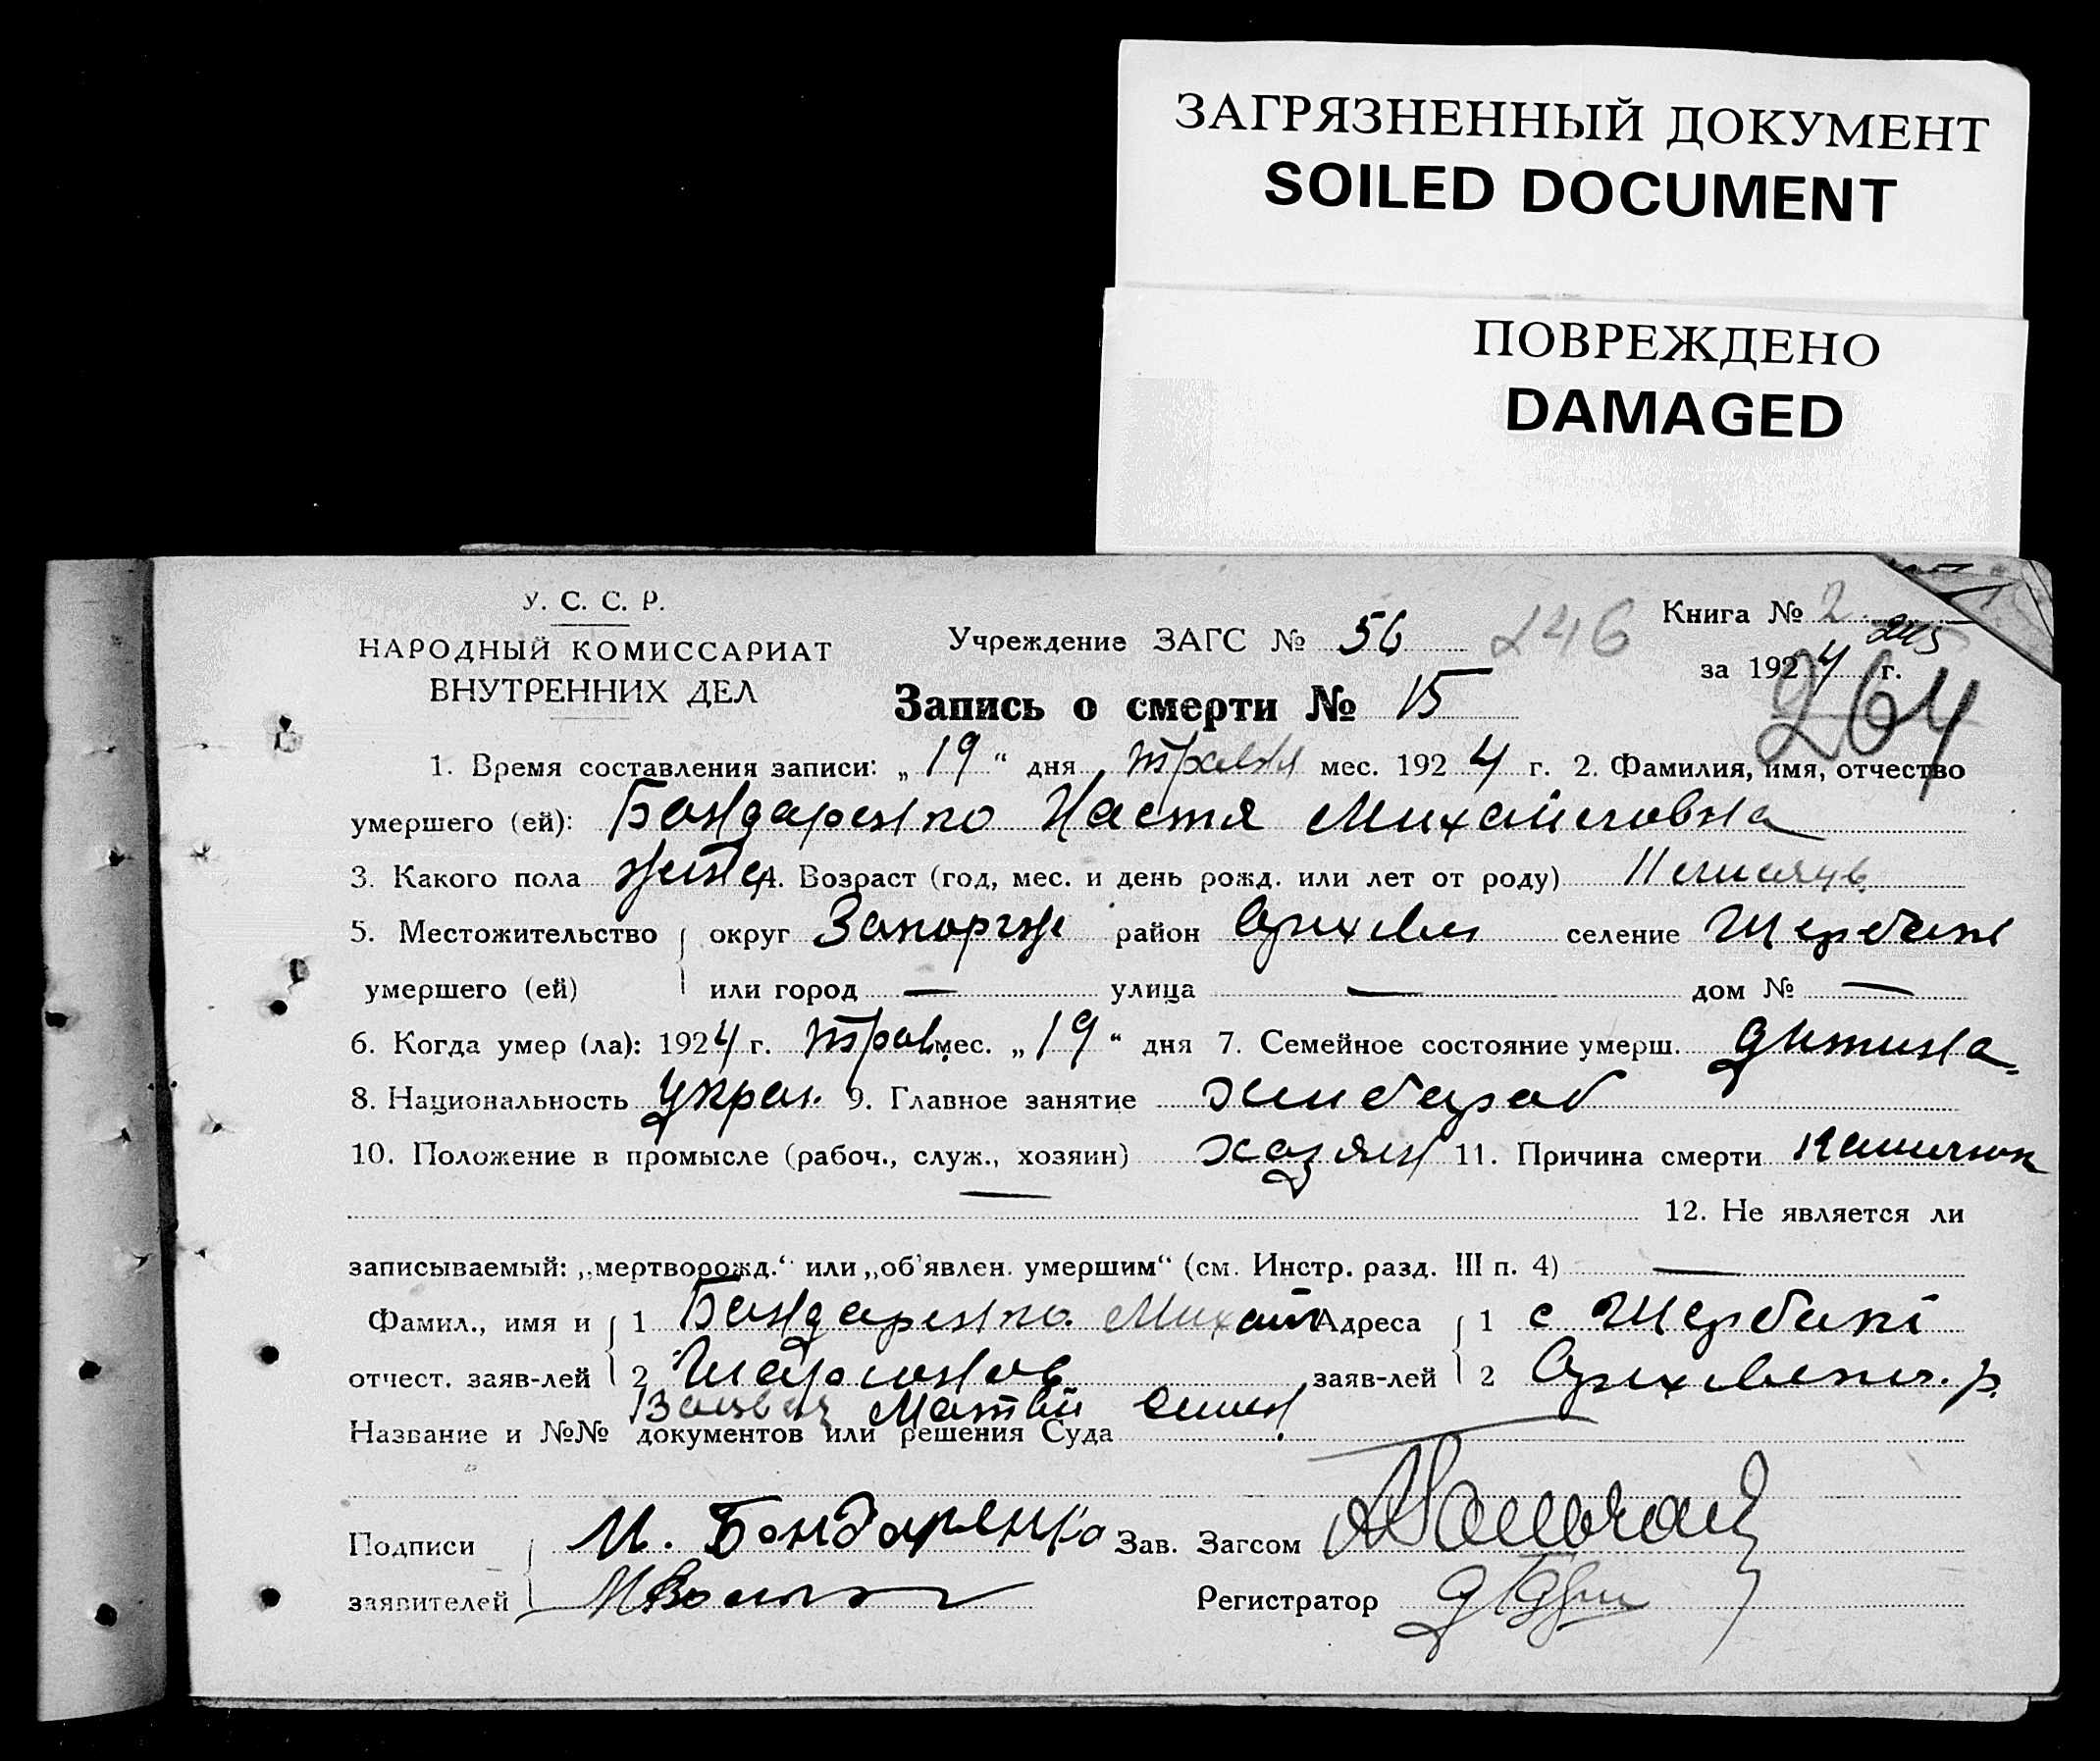 ЗАГРЯЗНЕННЫЙ ДОКУМЕНТ
SOILED DOCUMENT
ПОВРЕЖДЕНО
DAMAGED
У. С. С. Р.
НАРОДНЫЙ КОМИССАРИАТ
ВНУТРЕННИХ ДЕЛ
Учреждение ЗАГС № 56 246
Книга № 2
245
за 1924 г.
264
Запись о смерти № 15
1. Время составления записи: „19“ дня травня мес. 1924 г. 2. Фамилия, имя, отчество
умершего (ей): Бондаренко Настя Михайловна
3. Какого пола 4. Возраст (год, мес. и день рожд. или лет от роду) 11 місяців
5. Местожительство округ Запоріж район Оріхів селение Щербаки
умершего (ей) или город — улица — дом № —
6. Когда умер (ла): 1924 г. трав. мес. „19“ дня 7. Семейное состояние умерш. дитина
8. Национальность Укра. 9. Главное занятие хлибороб
10. Положение в промысле (рабоч., служ., хозяин) хазяин 11. Причина смерти
— 12. Не является ли
записываемый: „мертворожд.“ или „об'явлен. умершим“ (см. Инстр. разд. III п. 4) —
Фамил., имя и 1 Бондаренко Михаил Адреса 1 с Щербакі
отчест. заяв-лей 2 заяв-лей 2 р.
Матвій
Название и №№ документов или решения Суда
Подписи М. Бондаренко Зав. Загсом
заявителей Регистратор